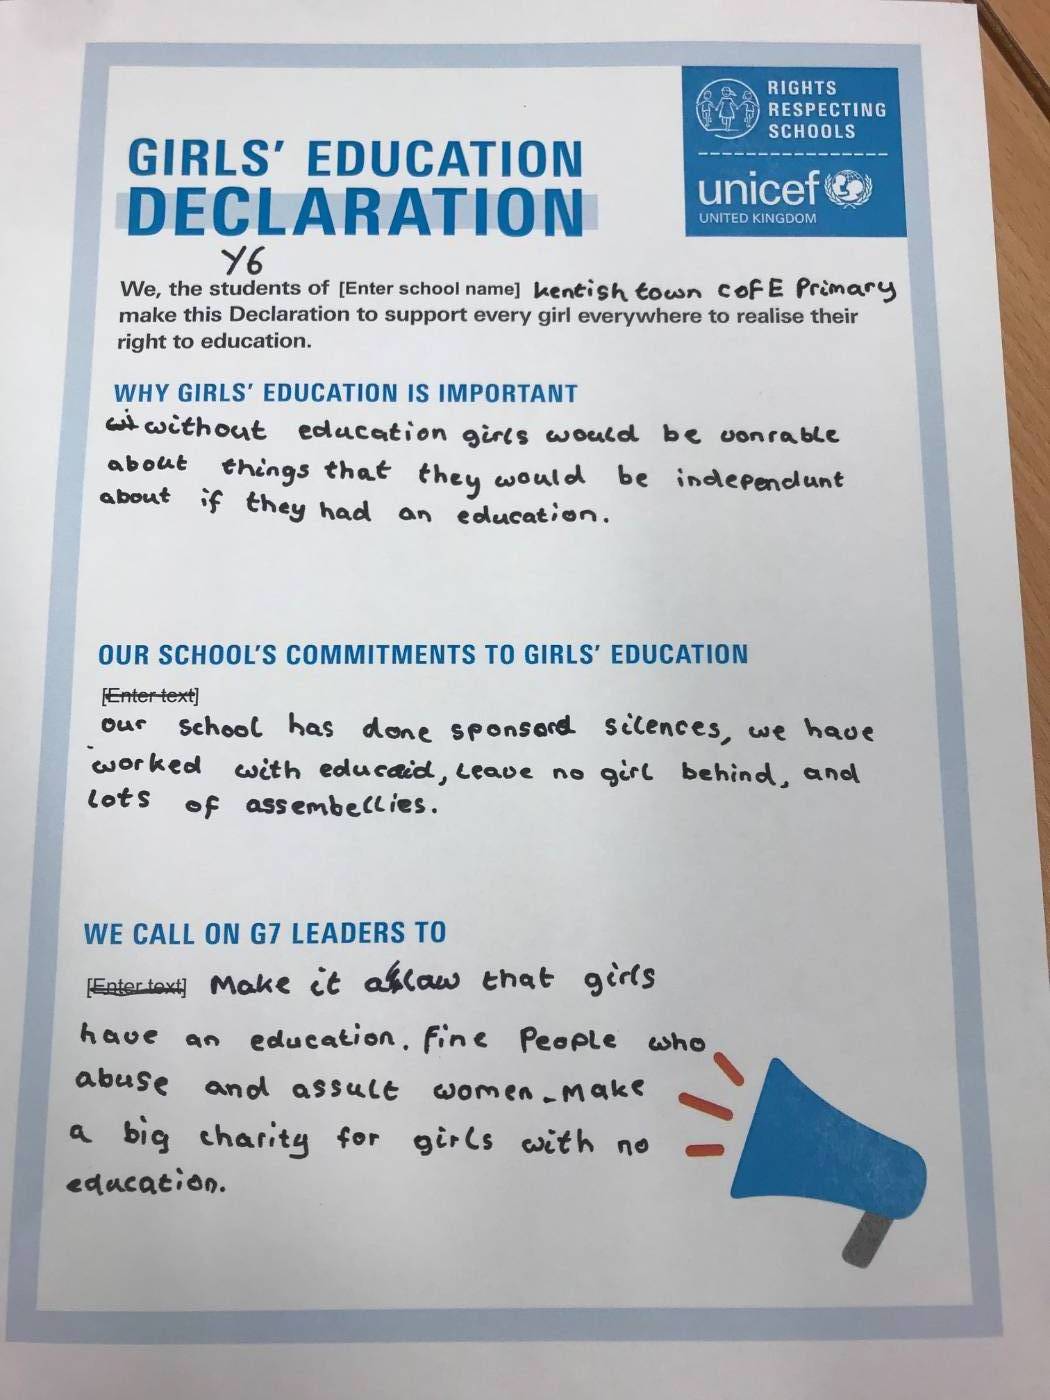 RIGHTS
RESPECTING
SCHOOLS
unicef
UNITED KINGDOM
GIRLS' EDUCATION
DECLARATION
Y6
We, the students of [Enter school name] kentish town CofE Primary
make this Declaration to support every girl everywhere to realise their
right to education.
WHY GIRLS' EDUCATION IS IMPORTANT
without education girls would be vonrable
about things that they would be independunt
about if they had an education.
OUR SCHOOL'S COMMITMENTS TO GIRLS' EDUCATION
[Enter text]
our school has done sponsord silences, we have
worked with educaid, leave no girl behind, and
lots of assembellies.
WE CALL ON G7 LEADERS TO
[Enter text] Make it a law that girls
have an education. fine People who
abuse and assult women. Make
a big charity for girls with no
education.